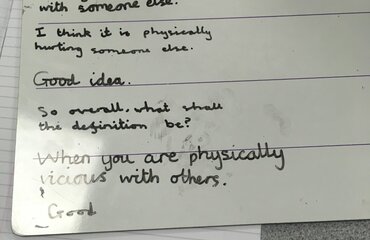 with someone else.
I think it is physically
hurting someone else.
Good idea.
So overall, what shall
the definition be?
When you are physically
vicious with others.
Good